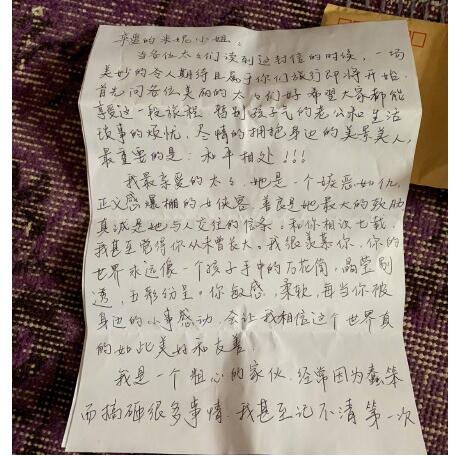 亲爱的米妮小姐：
当各位太太们读到这封信的时候，一场
美妙的令人期待且属于你们旅行即将开始.
首先问各位美丽的太太们好，希望大家都能
享受这一段旅程，暂别孩子气的老公和生活
琐事的烦忧，尽情的拥抱身边的美景美人，
最重要的是：和平相处!!!
我最亲爱的太太，她是一个嫉恶如仇，
正义感爆棚的女侠客，善良是她最大的软肋
真诚是她与人交往的信条。和你相识七载，
我甚至觉得你从未曾长大。我很羡慕你，你的
世界永远像一个孩子手中的万花筒，晶莹剔
透，五彩纷呈。你敏感，柔软，每当你被
身边的小事感动，会让我相信这个世界真
的如此美好和友善！
我是一个粗心的家伙，经常因为蠢笨
而搞砸很多事情，我甚至记不清第一次